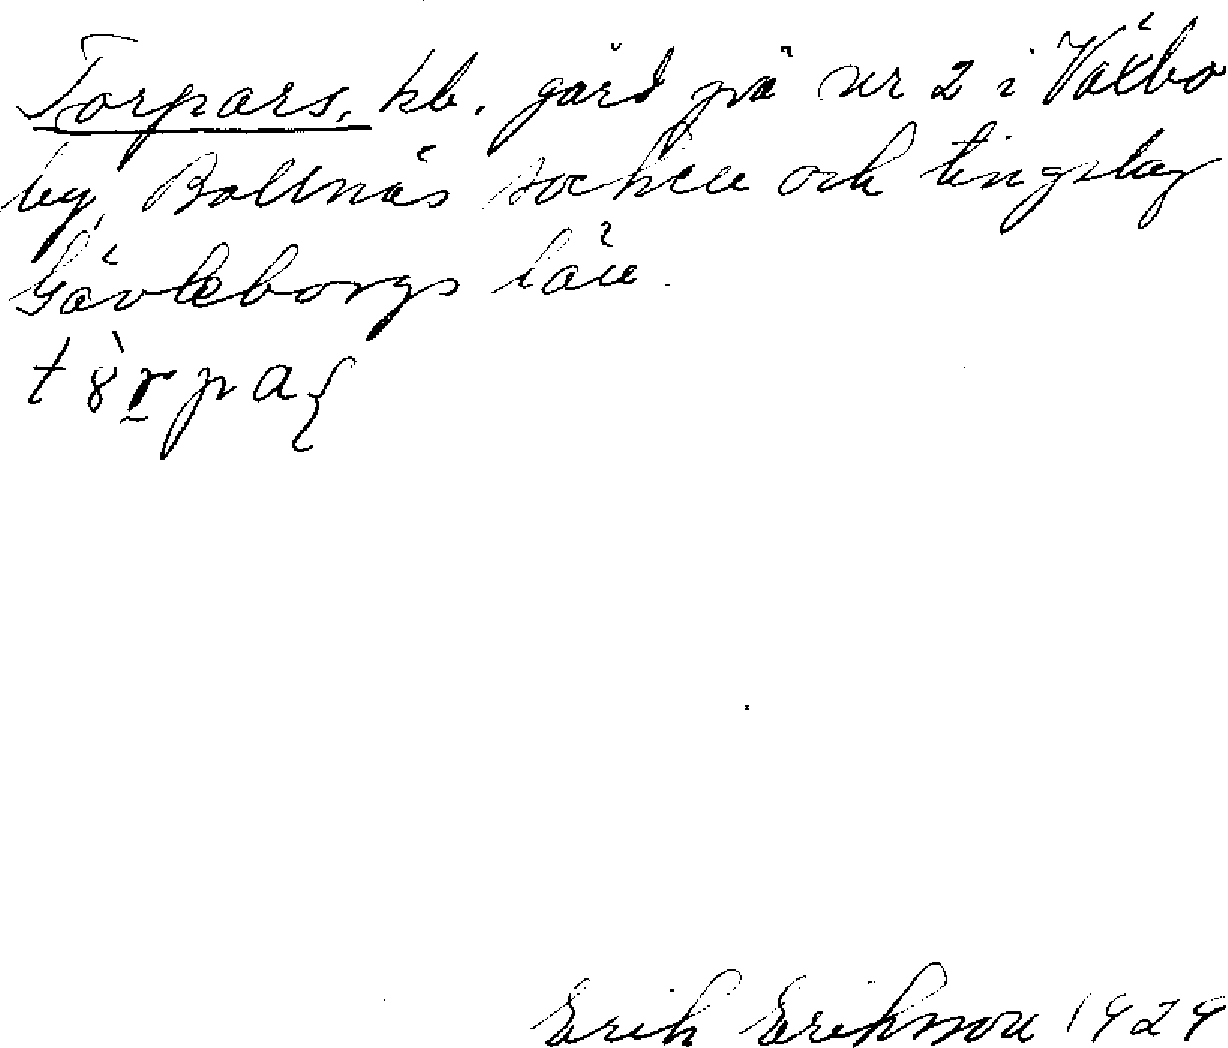 Torpars, kb. gård på nr 2 i Växbo
by, Bollnäs socken och tingslag
Gävleborgs län.
Erik Eriksson 1929